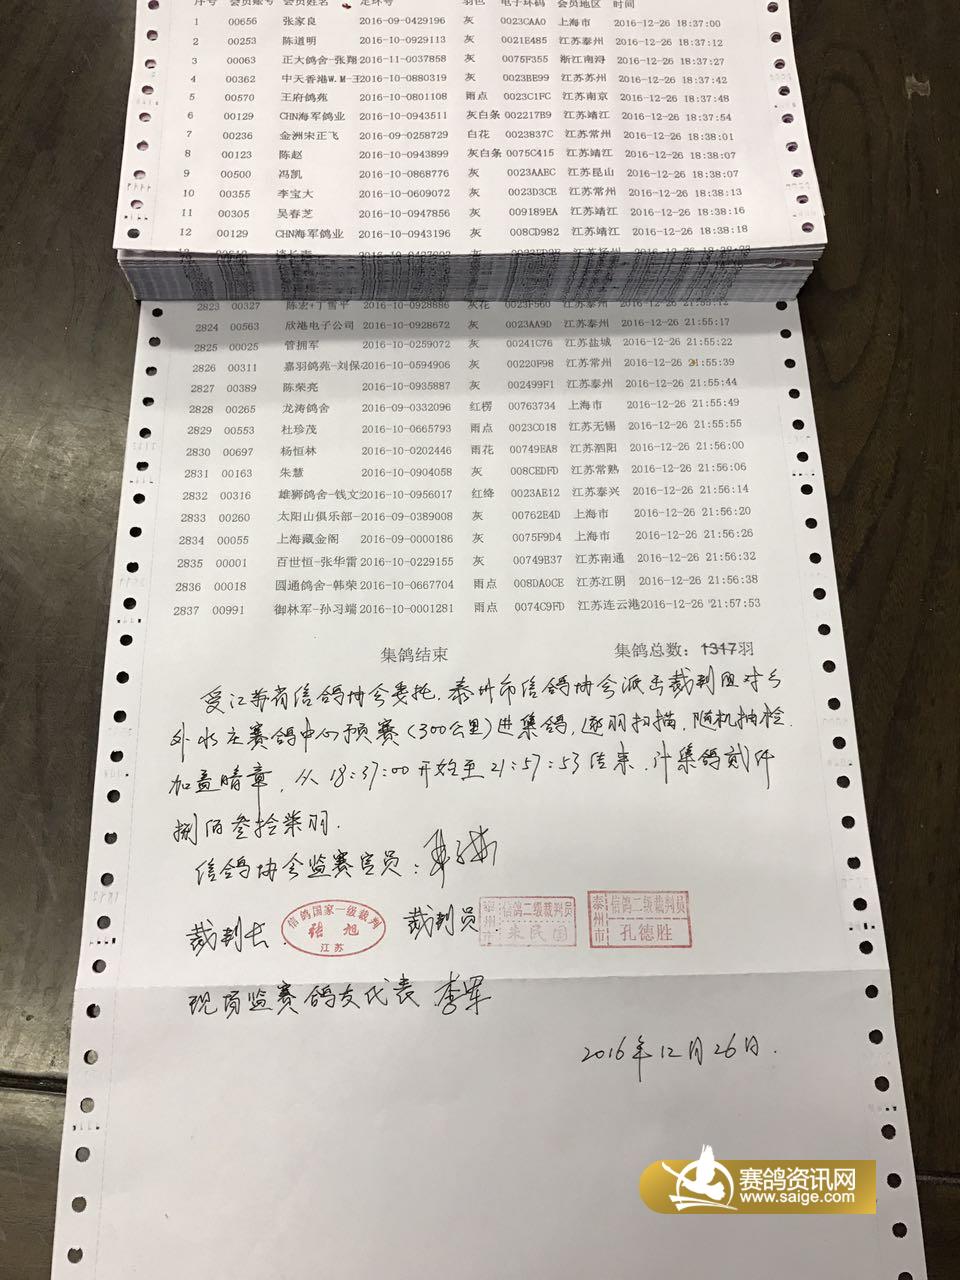 序号 会员账号 会员姓名 足环号 羽色 电子环码 会员地区 时间
1 00656 张家良 2016-09-0429196 灰 0023CAA0 上海市 2016-12-26 18:37:00
2 00253 陈道明 2016-10-0929113 灰 0021E485 江苏泰州 2016-12-26 18:37:12
3 00063 正大鸽舍-张翔 2016-11-0037858 灰 0075F355 浙江南浔 2016-12-26 18:37:27
4 00362 中天香港W.M-王 2016-10-0880319 灰 0023BE99 江苏苏州 2016-12-26 18:37:42
5 00570 王府鸽苑 2016-10-0801108 雨点 0023C1FC 江苏南京 2016-12-26 18:37:48
6 00129 CHN海军鸽业 2016-10-0943511 灰白条 002217B9 江苏靖江 2016-12-26 18:37:54
7 00236 金洲宋正飞 2016-09-0258729 白花 0023837C 江苏常州 2016-12-26 18:38:01
8 00123 陈赵 2016-10-0943899 灰白条 0075C415 江苏靖江 2016-12-26 18:38:07
9 00500 冯凯 2016-10-0868776 灰 0023AAEC 江苏昆山 2016-12-26 18:38:07
10 00355 李宝大 2016-10-0609072 灰 0023D3CE 江苏常州 2016-12-26 18:38:13
11 00305 吴春芝 2016-10-0947856 灰 009189EA 江苏靖江 2016-12-26 18:38:16
12 00129 CHN海军鸽业 2016-10-0943196 灰 008CD982 江苏靖江 2016-12-26 18:38:18
2823 00327 陈宏+丁雪平 2016-10-0928886 灰花 0023F560 江苏泰州 2016-12-26 21:55:12
2824 00563 欣港电子公司 2016-10-0928672 灰 0023AA9D 江苏泰州 2016-12-26 21:55:17
2825 00025 管拥军 2016-10-0259072 灰 00241C76 江苏盐城 2016-12-26 21:55:22
2826 00311 嘉羽鸽苑-刘保 2016-10-0594906 灰 00220F98 江苏常州 2016-12-26 21:55:39
2827 00389 陈荣亮 2016-10-0935887 灰 002499F1 江苏泰州 2016-12-26 21:55:44
2828 00265 龙涛鸽舍 2016-09-0332096 红楞 00763734 上海市 2016-12-26 21:55:49
2829 00553 杜珍茂 2016-10-0665793 雨点 0023C018 江苏无锡 2016-12-26 21:55:55
2830 00697 杨恒林 2016-10-0202446 雨花 00749EA8 江苏泗阳 2016-12-26 21:56:00
2831 00163 朱慧 2016-10-0904058 灰 008CEDFD 江苏常熟 2016-12-26 21:56:06
2832 00316 雄狮鸽舍-钱文 2016-10-0956017 红绛 0023AE12 江苏泰兴 2016-12-26 21:56:14
2833 00260 太阳山俱乐部- 2016-09-0389008 灰 00762E4D 上海市 2016-12-26 21:56:20
2834 00055 上海藏金阁 2016-09-0000186 灰 0075F9D4 上海市 2016-12-26 21:56:26
2835 00001 百世恒-张华雷 2016-10-0229155 灰 00749B37 江苏南通 2016-12-26 21:56:32
2836 00018 圆通鸽舍-韩荣 2016-10-0667704 雨点 008DA0CE 江苏江阴 2016-12-26 21:56:38
2837 00991 御林军-孙习端 2016-10-0001281 雨点 0074C9FD 江苏连云港 2016-12-26 21:57:53
集鸽结束 集鸽总数: 1317羽
受江苏省信鸽协会委托,泰州市信鸽协会派出裁判组对
外水庄赛鸽中心预赛(300公里)进集鸽,逐羽扫描,随机抽检
加盖暗章,从18:37:00开始至21:57:53结束,计集鸽贰仟
捌佰叁拾柒羽.
信鸽协会监赛官员:
裁判长 信鸽国家一级裁判 张旭 江苏 裁判员 泰州市 信鸽二级裁判员 朱民国 泰州市 信鸽二级裁判员 孔德胜
现场监赛鸽友代表 李军
2016年12月26日.
赛鸽资讯网
www.saige.com